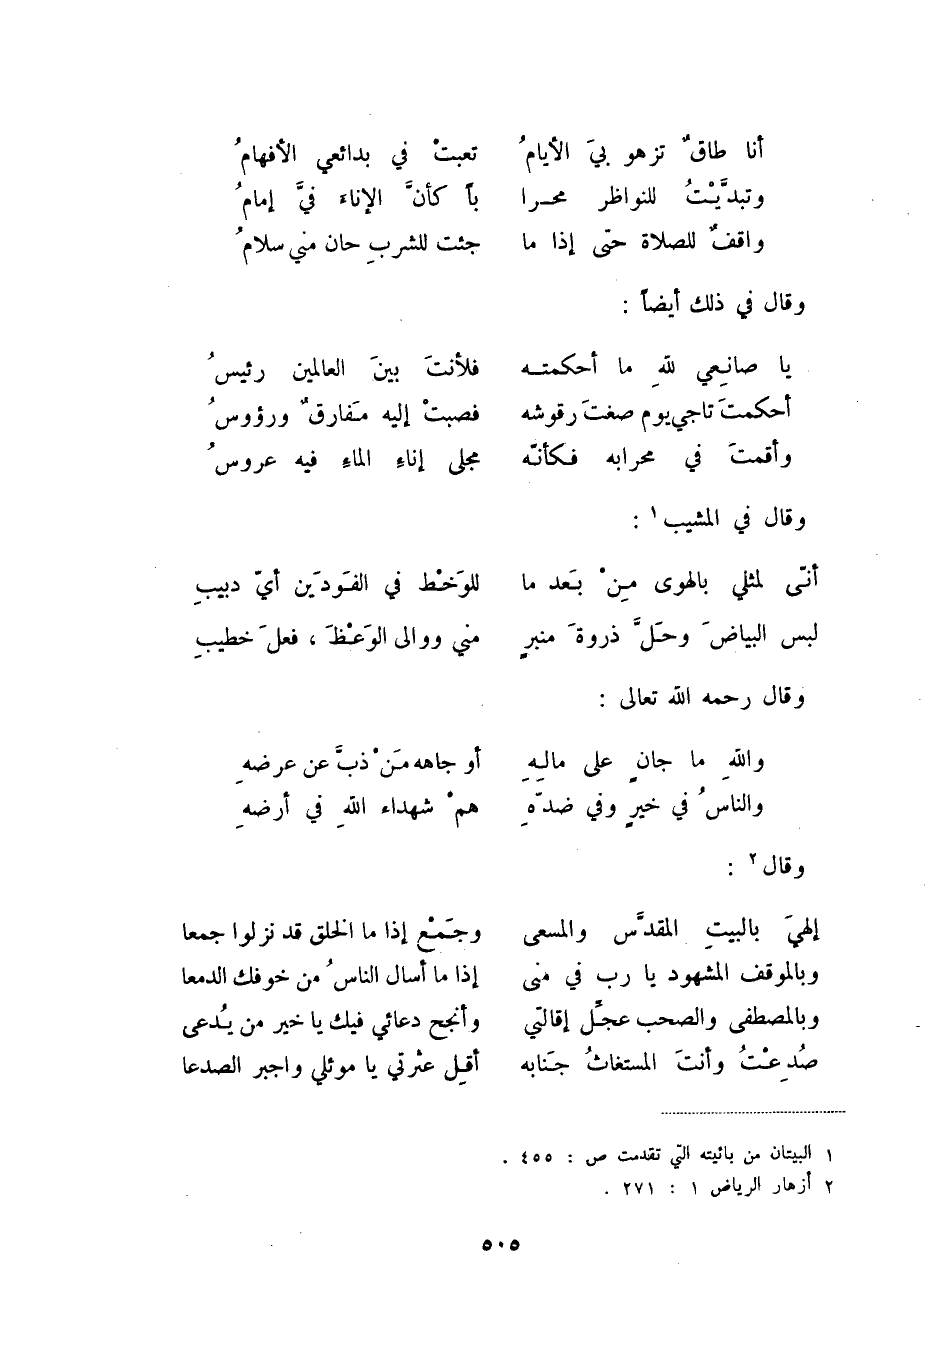 أنا طاقٌ تزهو بيَ الأيامُ تعبتْ في بدائعي الأفهامُ
وتبدَّيْتُ للنواظر محرا باً كأنَّ الإناءَ فيَّ إمامُ
واقفٌ للصلاة حتّى إذا ما جئت للشربِ حان مني سلامُ
وقال في ذلك أيضاً :
يا صانِعي للهِ ما أحكمته فلأنتَ بينَ العالمين رئيسُ
أحكمتَ تاجي يوم صغتَ رقوشه فصبتْ إليه مَفارقٌ ورؤوسُ
وأقمتَ في محرابه فكأنّه مجلى إناءِ الماءِ فيه عروسُ
وقال في المشيب ١ :
أنّى لمثلي بالهوى مِنْ بَعد ما للوَخْط في الفَودَين أيّ دبيبِ
لبس البياضَ وحَلَّ ذروةَ منبرٍ مني ووالى الوَعْظَ ، فعلَ خطيبِ
وقال رحمه الله تعالى :
واللهِ ما جانٍ على مالِهِ أو جاهه مَنْ ذبَّ عن عرضهِ
والناسُ في خيرٍ وفي ضدّهِ همْ شهداء اللهِ في أرضهِ
وقال ٢ :
إلهيَ بالبيتِ المقدَّس والمسعى وجَمْعٍ إذا ما الخلق قد نزلوا جمعا
وبالموقف المشهود يا رب في منى إذا ما أسال الناسُ من خوفك الدمعا
وبالمصطفى والصحب عجّل إقالتي وأنجح دعائي فيك يا خير من يُدعى
صُدِعْتُ وأنتَ المستغاثُ جَنابه أقِل عثرتي يا موئلي واجبر الصدعا
١ البيتان من بائيته التي تقدمت ص : ٤٥٥ .
٢ أزهار الرياض ١ : ٢٧١ .
٥٠٥